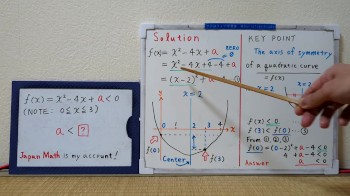 f(x) = x² - 4x + a < 0
(NOTE: 0 ≦ x ≦ 3)
a < ?
Japan Math is my account!
Solution
f(x) = x² - 4x + a
ZERO
= 0
= x² - 4x + 4 - 4 + a
= (x - 2)² + a - 4
x = 2
y
0 1 2 3 4
x
f(0)
f(3)
Center
KEY POINT
The axis of symmetry
of a quadratic curve
= f(x)
x = 2
f(x) ≦ 0
f(3) < f(0) ⋯ ③
From ①, ②, ③
f(0) = (0-2)² + a - 4 ≦ 0
4 + a - 4 ≦ 0
Answer
a < 0